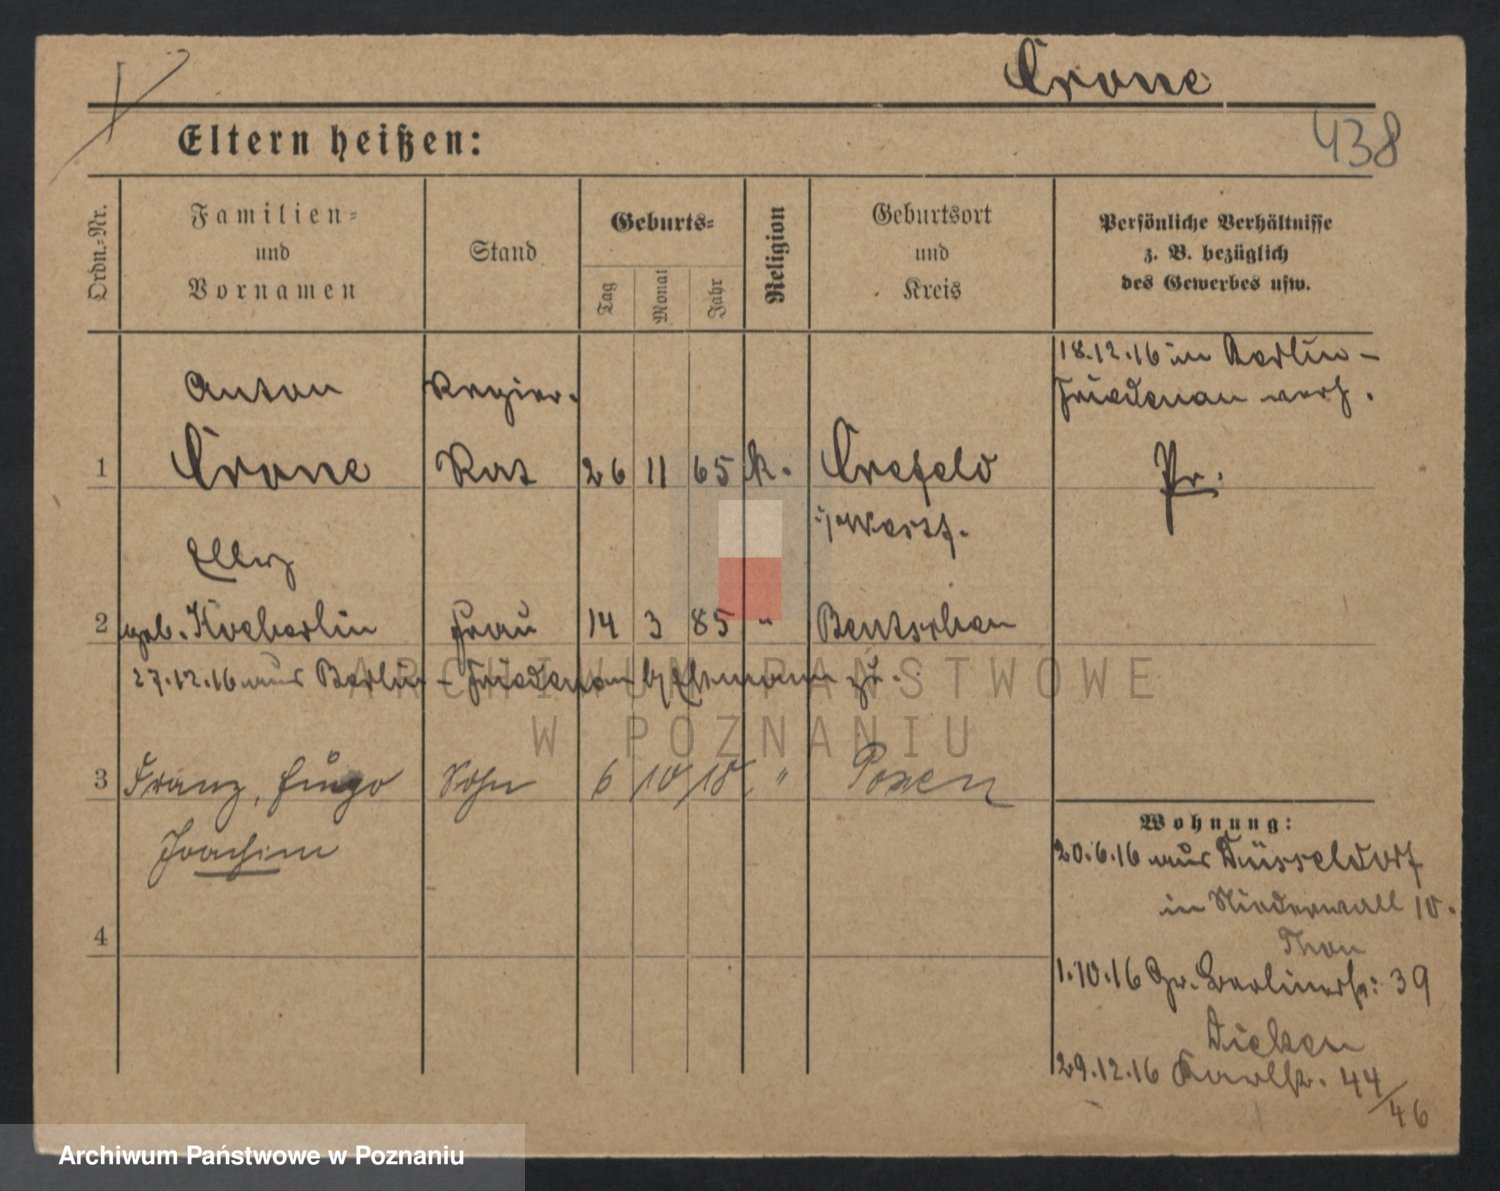 Crone
438
Eltern heißen:
Ordn.-Nr.
Familien-
und
Vornamen
Stand
Geburts-
Tag
Monat
Jahr
Religion
Geburtsort
und
Kreis
Persönliche Verhältnisse
z. B. bezüglich
des Gewerbes usw.
18.12.16 in Berlin-
Friedenau verh.
Anton
Regier.
1 Crone Rat 26 11 65 k. Crefeld
Pr.
i/Westf.
Elly
2 geb. Koeberlin Frau 14 3 85 " Bentschen
27.12.16 aus Berlin-Friedenau b/Ehemann zu.
3 Franz, Hugo Sohn 6 10 18 " Posen
Joachim
4
Wohnung:
20.6.16 aus Düsseldorf
in Niederwall 10.
Thon
1.10.16 Gr. Berlinerstr: 39
29.12.16 Karlstr. 44/46
ARCHIWUM PAŃSTWOWE
W POZNANIU
Archiwum Państwowe w Poznaniu